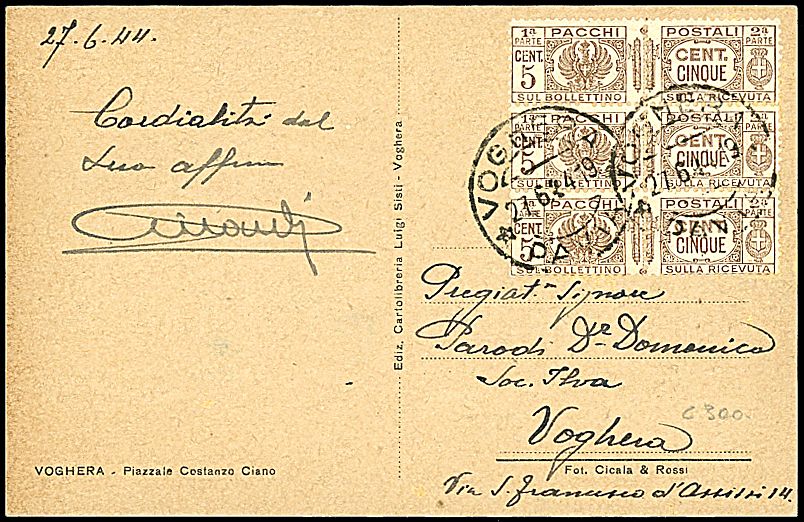 27.6.44.
Cordialità dal
Suo affmo
Ediz. Cartolibreria Luigi Sisti - Voghera
VOGHERA - Piazzale Costanzo Ciano
1ª PARTE PACCHI POSTALI 2ª PARTE
CENT. 5 CENT. CINQUE
SUL BOLLETTINO SULLA RICEVUTA
1ª PARTE PACCHI POSTALI 2ª PARTE
CENT. 5 CENT. CINQUE
SUL BOLLETTINO SULLA RICEVUTA
1ª PARTE PACCHI POSTALI 2ª PARTE
CENT. 5 CENT. CINQUE
SUL BOLLETTINO SULLA RICEVUTA
VOGHERA
27.6.44-19
PAVIA
VOGHERA
27.6
Pregiat.º Signore
Parodi Dr Domenico
Soc. Ilva
Voghera
C 300.
Fot. Cicala & Rossi
Via S. Francesco d'Assisi 14.